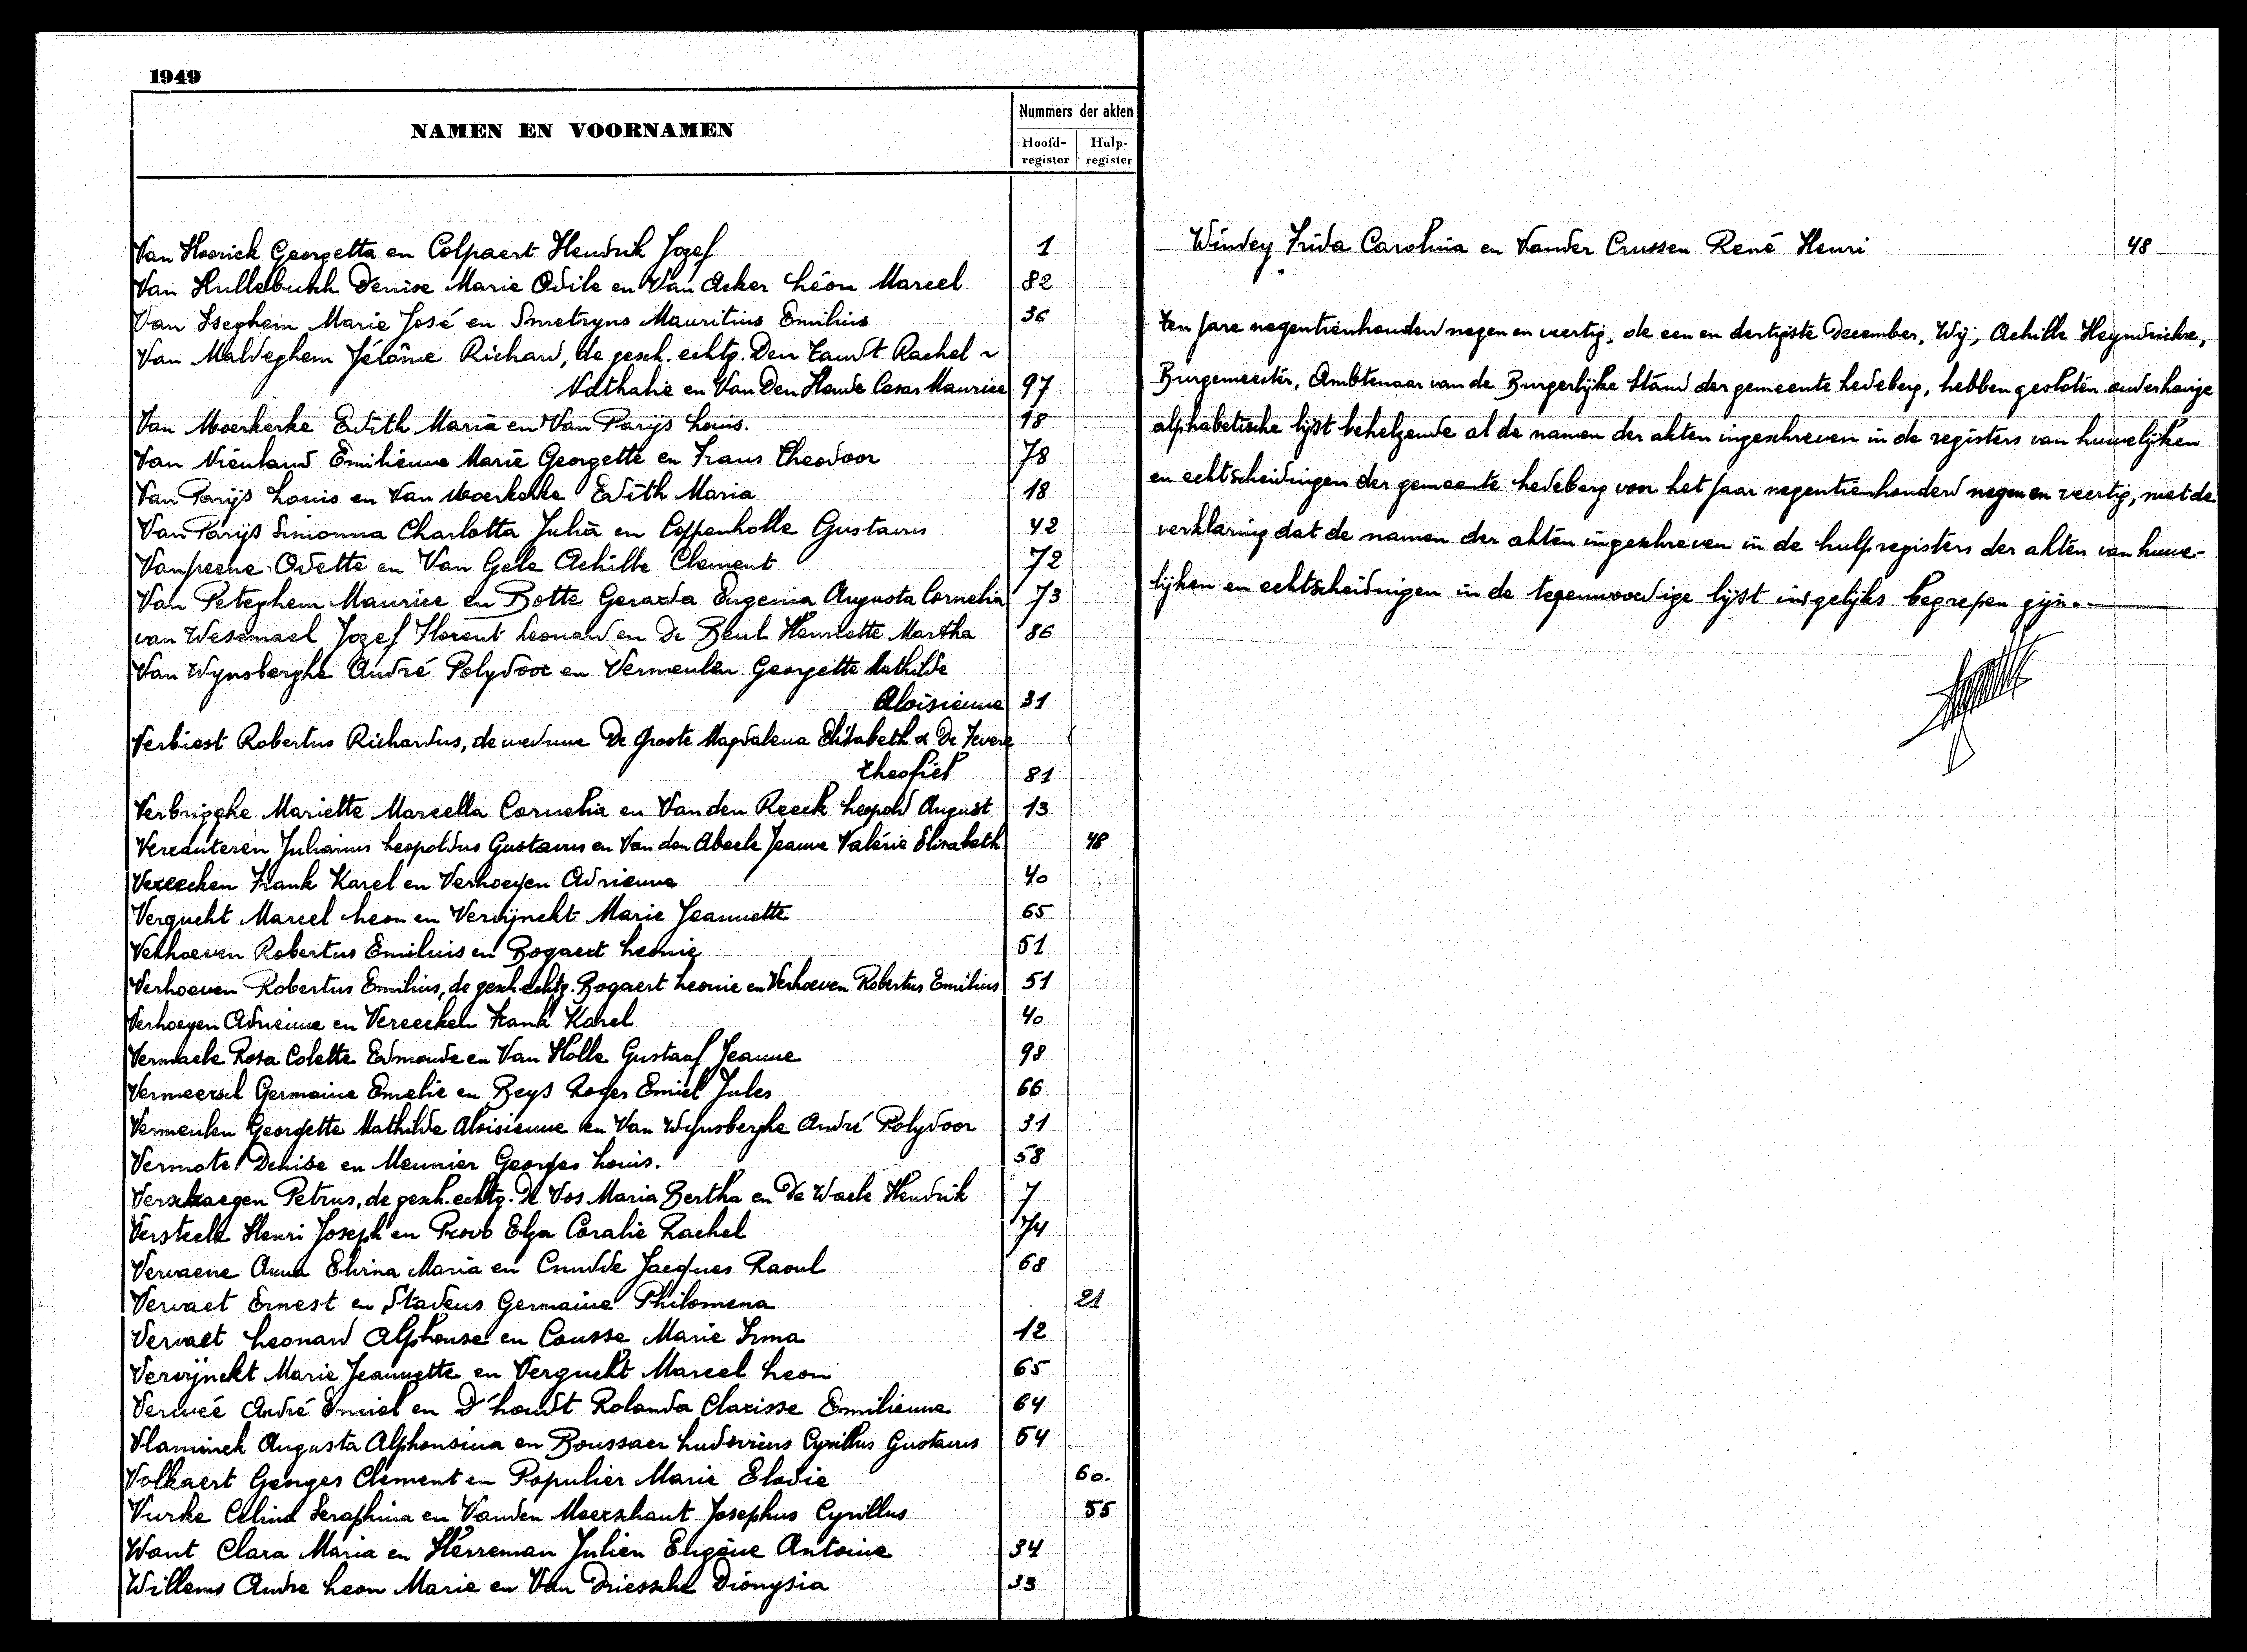 1949
NAMEN EN VOORNAMEN
Nummers der akten
Hoofd-register
Hulp-register
Van Hoorick Georgetta en Colpaert Hendrik Jozef 1
Van Hullebusch Denise Marie Odile en Van Acker Léon Marcel 82
Van Iseghem Marie José en Smetryns Mauritius Emilius 36
Van Maldeghem Jérôme Richard, de gesch. echtg. Den Tandt Rachel
Nathalie en Van Den Hende Cesar Maurice 97
Van Moerkerke Edith Maria en Van Parijs Louis. 18
Van Nieuland Emilienne Marie Georgette en Frans Theodoor 78
Van Parijs Louis en Van Moerkerke Edith Maria 18
Van Parijs Simonna Charlotta Julia en Coppenholle Gustavus 42
Vanpeene Odette en Van Gele Achille Clement 72
Van Peteghem Maurice en Botte Gerarda Eugenia Augusta Cornelia 73
van Wesemael Jozef Florent Leonard en De Beul Henriette Martha 86
Van Wynsberghe André Polydoor en Vermeulen Georgette Mathilde
Aloisienne 31
Verbiest Robertus Richardus, de weduwe De Groote Magdalena Elisabeth & De Fevere
Theofiel 81
Verbrigghe Mariette Marcella Cornelia en Van den Reeck Leopold August 13
Vereduteren Julianus Leopoldus Gustavus en Van den Abeele Jeanne Valérie Elisabeth 48
Vereecken Frank Karel en Verhoeyen Adrienne 40
Vergucht Marcel Leon en Verwijnckt Marie Jeannette 65
Verhoeven Robertus Emilius en Bogaert Leonie 51
Verhoeven Robertus Emilius, de gesch. echtg. Bogaert Leonie en Verhoeven Robertus Emilius 51
Verhoeyen Adrienne en Vereecken Frank Karel 40
Vermaele Rosa Colette Edmonde en Van Holle Gustaaf Jeanne 98
Vermeersch Germaine Emelie en Beys Roger Emiel Jules 66
Vermeulen Georgette Mathilde Aloisienne en Van Wynsberghe André Polydoor 31
Vermote Denise en Meunier Georges Louis. 58
Verschaegen Petrus, de gesch. echtg. De Vos Maria Bertha en De Waele Hendrik 7
Versteele Henri Joseph en Provo Elza Coralie Rachel 74
Vervaene Anna Elvina Maria en Cnudde Jacques Raoul 68
Vervaet Ernest en Stadeus Germaine Philomena 21
Vervaet Leonard Alphonse en Cousse Marie Irma 12
Verwijnckt Marie Jeannette en Vergucht Marcel Leon 65
Verweé André Emiel en D'hondt Rolanda Clarisse Emilienne 64
Vlaminck Augusta Alphonsina en Boussaer Ludovicus Cyrillus Gustavus 54
Volkaert Georges Clement en Populier Marie Elodie 60.
Vurke Celina Seraphina en Vanden Meerschaut Josephus Cyrillus 55
Want Clara Maria en Herreman Julien Eugène Antoine 34
Willems Andre Leon Marie en Van Driessche Dionysia 33
Windey Frida Carolina en Vander Crussen René Henri 48
Ten jare negentienhonderd negen en veertig, de een en dertigste December, Wij, Achille Heyndrickx,
Burgemeester, Ambtenaar van de Burgerlijke Stand der gemeente Ledeberg, hebben gesloten onderhavige
alphabetische lijst behelzende al de namen der akten ingeschreven in de registers van huwelijken
en echtscheidingen der gemeente Ledeberg voor het jaar negentienhonderd negen en veertig, met de
verklaring dat de namen der akten ingeschreven in de hulpregisters der akten van huwe-
lijken en echtscheidingen in de tegenwoordige lijst insgelijks begrepen zijn.